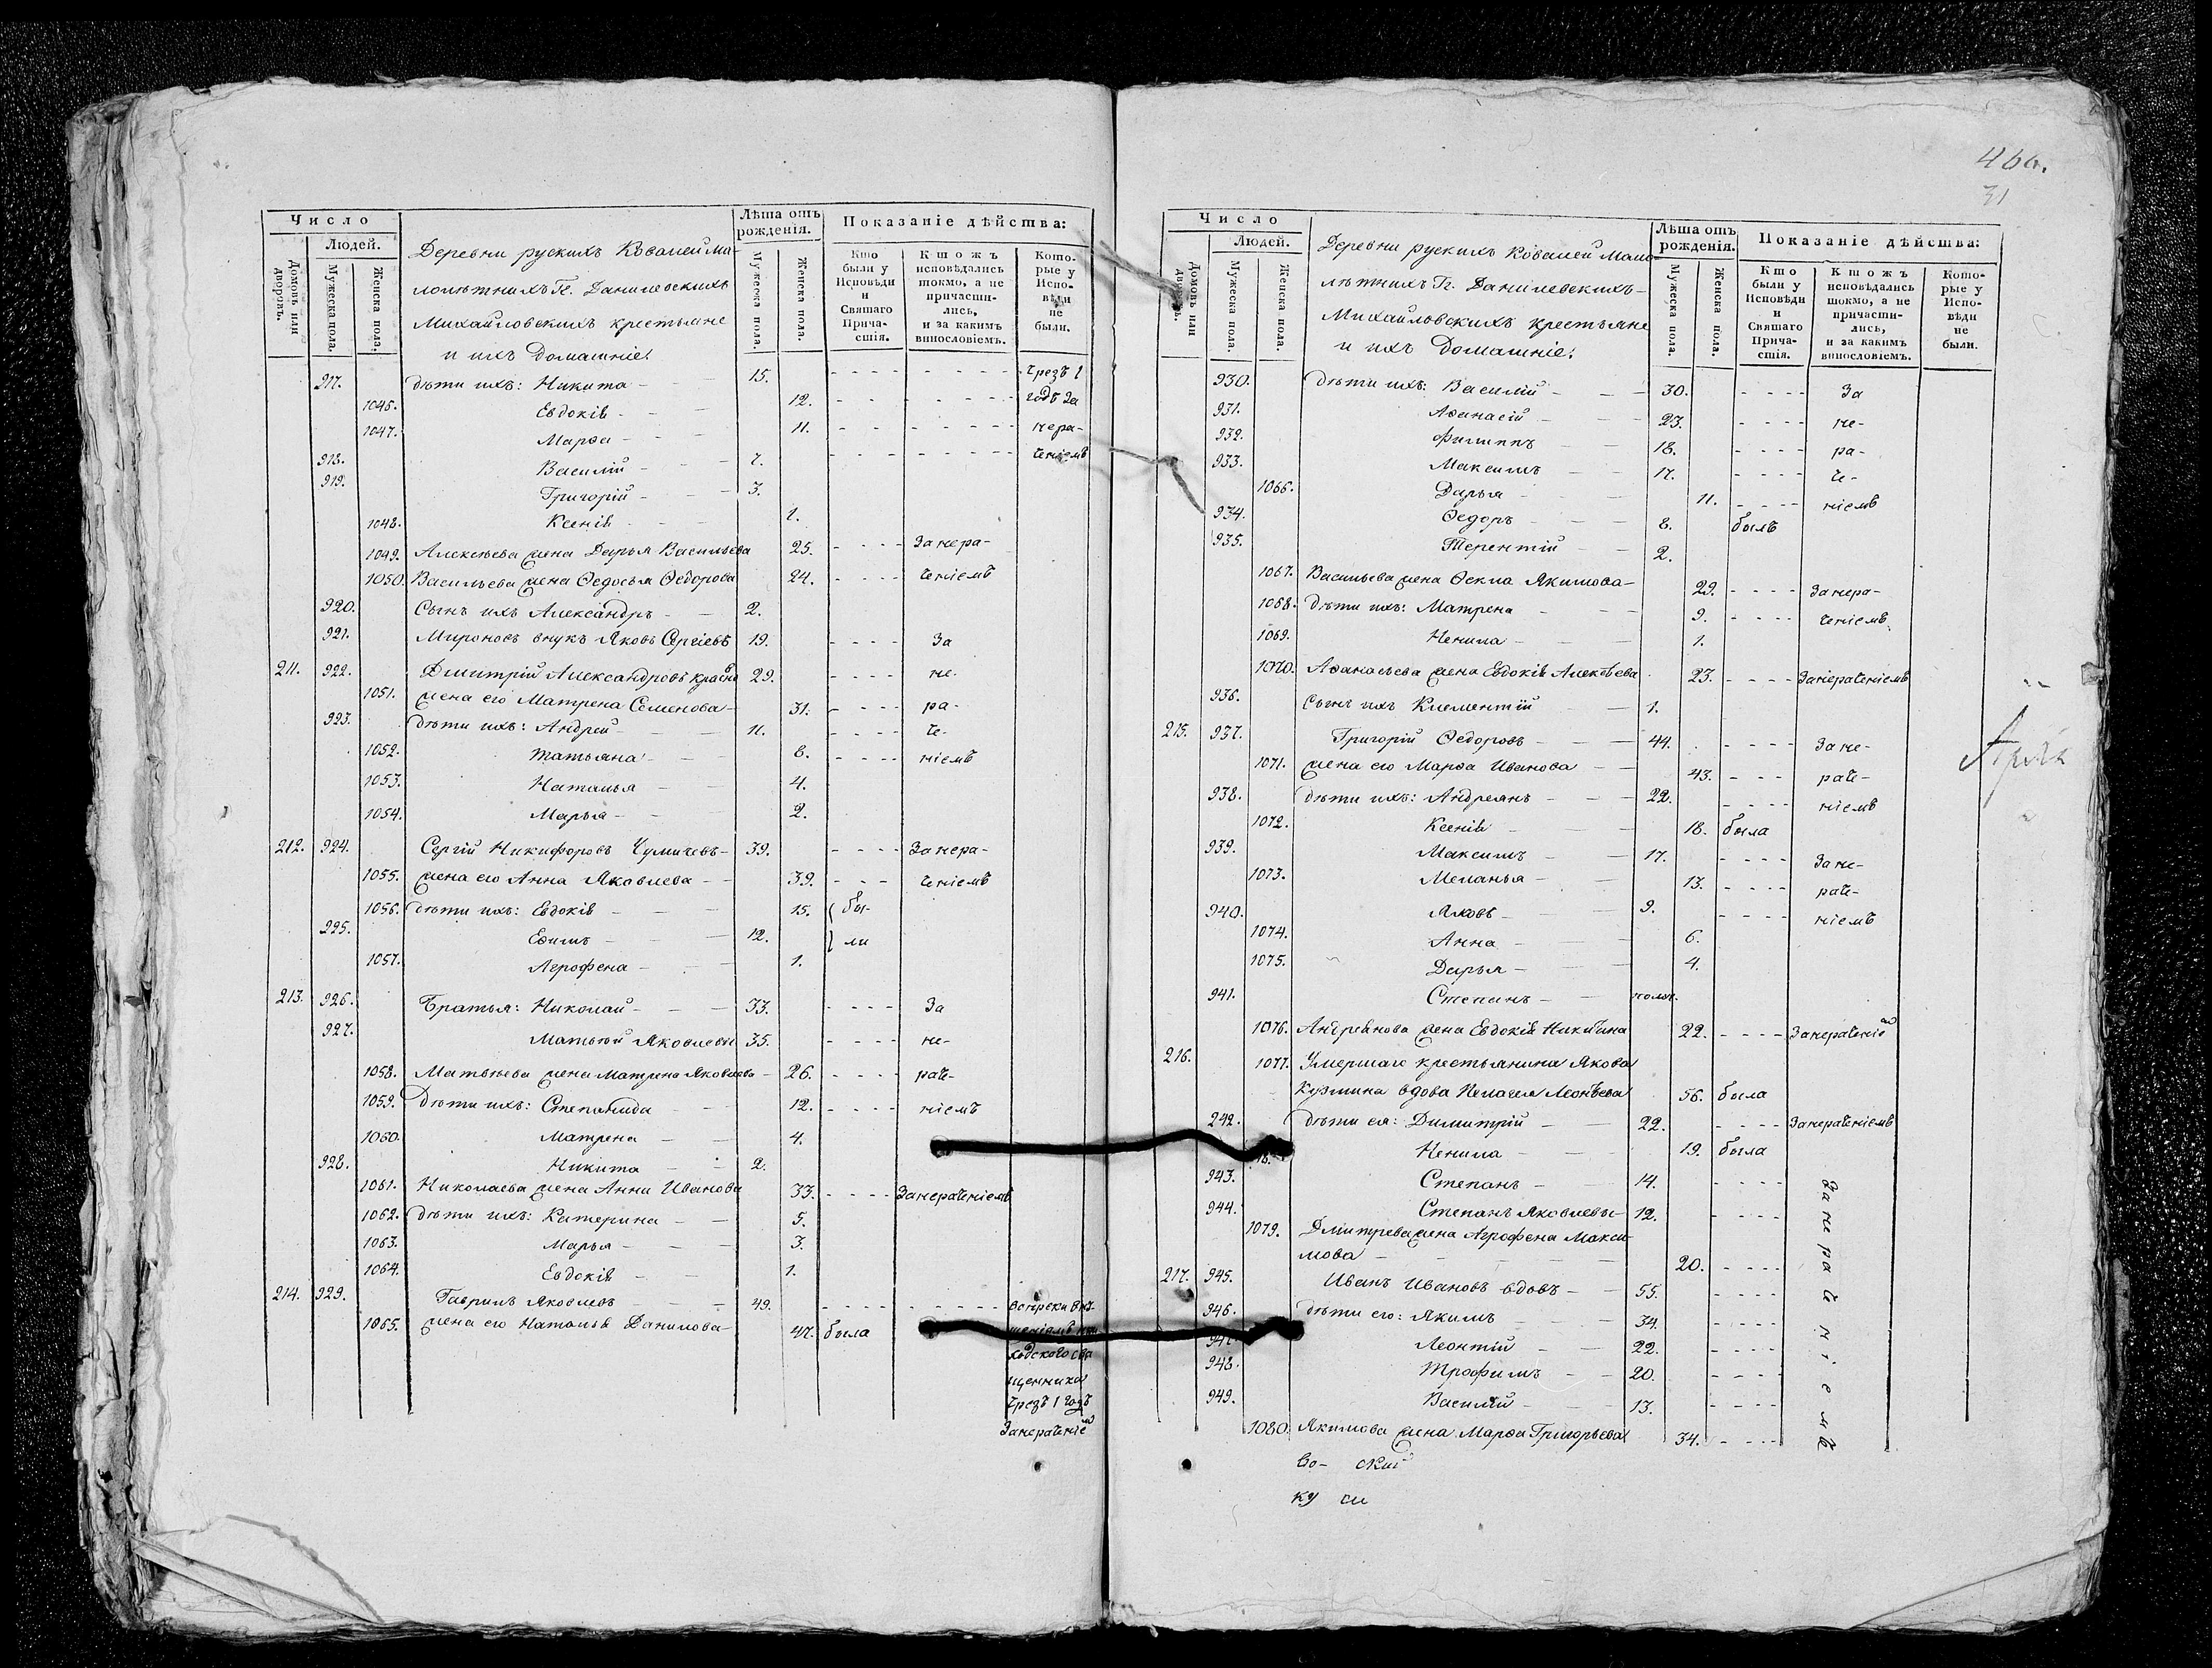 Число
Людей.
Домовъ или дворовъ.
Мужеска пола.
Женска пола.
Деревни рускихъ Ковалей ма-
лолѣтнихъ Гг. Данилевскихъ
Михайловскихъ крестьяне
и ихъ домашніе:
Лѣта отъ рожденія.
Мужеска пола.
Женска пола.
Показаніе дѣйства:
Кто были у Исповѣди и Святаго Прича-стія.
Ктожъ исповѣдались токмо, а не причасти-лись, и за какимъ винословіемъ.
Кото-рые у Испо-вѣди не были.
917. дѣти ихъ: Никита 15. Чрезъ 1
1046. Евдокія 12. годъ за
1047. Марѳа 11. нера-
918. Василій 7. ченіемъ
919. Григорій 3.
1048. Ксенія 1.
1049. Алексѣева жена Дарья Васильева 25. За нера-
1050. Васильева жена Ѳедосья Ѳедорова 24. ченіемъ
920. Сынъ ихъ Александръ 2.
921. Мироновъ внукъ Яковъ Сергіевъ 19. За
211. 922. Дмитрій Александровъ 29. не-
1051. жена его Матрена Семенова 31. ра-
923. дѣти ихъ: Андрей 11. че-
1052. Татьяна 8. ніемъ
1053. Наталья 4.
1054. Марья 2.
212. 924. Сергій Никифоровъ Чумичевъ 39. За нера-
1055. жена его Анна Яковлева 39. ченіемъ
1056. дѣти ихъ: Евдокія 15. бы-
925. Еѳимъ 12. ли
1057. Агрофена 1.
213. 926. Братья: Николай 33. За
927. Матвѣй Яковлевы 35. не-
1058. Матвѣева жена Матрена Яковлева 26. раче-
1059. Дѣти ихъ: Степанида 12. ніемъ
1060. Матрена 4.
928. Никита 2.
1061. Николаева жена Анна Иванова 33. За нераченіемъ
1062. дѣти ихъ: Катерина 5.
1063. Марья 3.
1064. Евдокія 1.
214. 929. Гаврилъ Яковлевъ 49.
1065. жена его Наталья Данилова 47. была
щенника
Чрезъ 1 годъ
За нераченіем
466.
31
Число
Людей.
Домовъ или дворовъ.
Мужеска пола.
Женска пола.
Деревни рускихъ Ковалей мало-
лѣтнихъ Гг. Данилевскихъ-
Михайловскихъ крестьяне
и ихъ домашніе:
Лѣта отъ рожденія.
Мужеска пола.
Женска пола.
Показаніе дѣйства:
Кто были у Исповѣди и Святаго Прича-стія.
Ктожъ исповѣдались токмо, а не причасти-лись, и за какимъ винословіемъ.
Кото-рые у Испо-вѣди не были.
930. дѣти ихъ: Василій 30. За
931. Аѳанасій 23. не-
932. Филиппъ 18. ра-
933. Максимъ 17. че-
1066. Дарья 11. ніемъ
934. Ѳедоръ 8. былъ
935. Терентій 2.
1067. Васильева жена Ѳекла Якимова 29. За нера-
1068. дѣти ихъ: Матрена 9. ченіемъ
1069. Ненила 1.
1070. Аѳанасьева жена Евдокія Алексѣева 23. За нераченіемъ
936. Сынъ ихъ Климентій 1.
215. 937. Григорій Ѳедоровъ 44. За не-
1071. жена его Марѳа Иванова 43. раче-
938. дѣти ихъ: Андреянъ 22. ніемъ
1072. Ксенія 18. была
939. Максимъ 17. За не-
1073. Меланья 13. раче-
940. Яковъ 9. ніемъ
1074. Анна 6.
1075. Дарья 4.
941. Степанъ
1076. Андреянова жена Евдокія Никитина 22. За нераченіем
216. 1077. Умершаго крестьянина Якова
Кузмина вдова Пелагея Леонтьева 56. была
242. дѣти ея: Димитрій 22. За нераченіемъ
Ненила 19. была
943. Степанъ 14.
944. Степанъ Яковлевы 12.
1079. Дмитрева жена Агрофена Макси-
мова 20.
217. 945. Иванъ Ивановъ вдовъ 55.
946. дѣти его: Якимъ 34.
Леонтій 22.
948. Трофимъ 20.
949. Василій 13.
1080. Якимова жена Марѳа Григорьева 34.
За нераченіемъ
во- ский
ку си